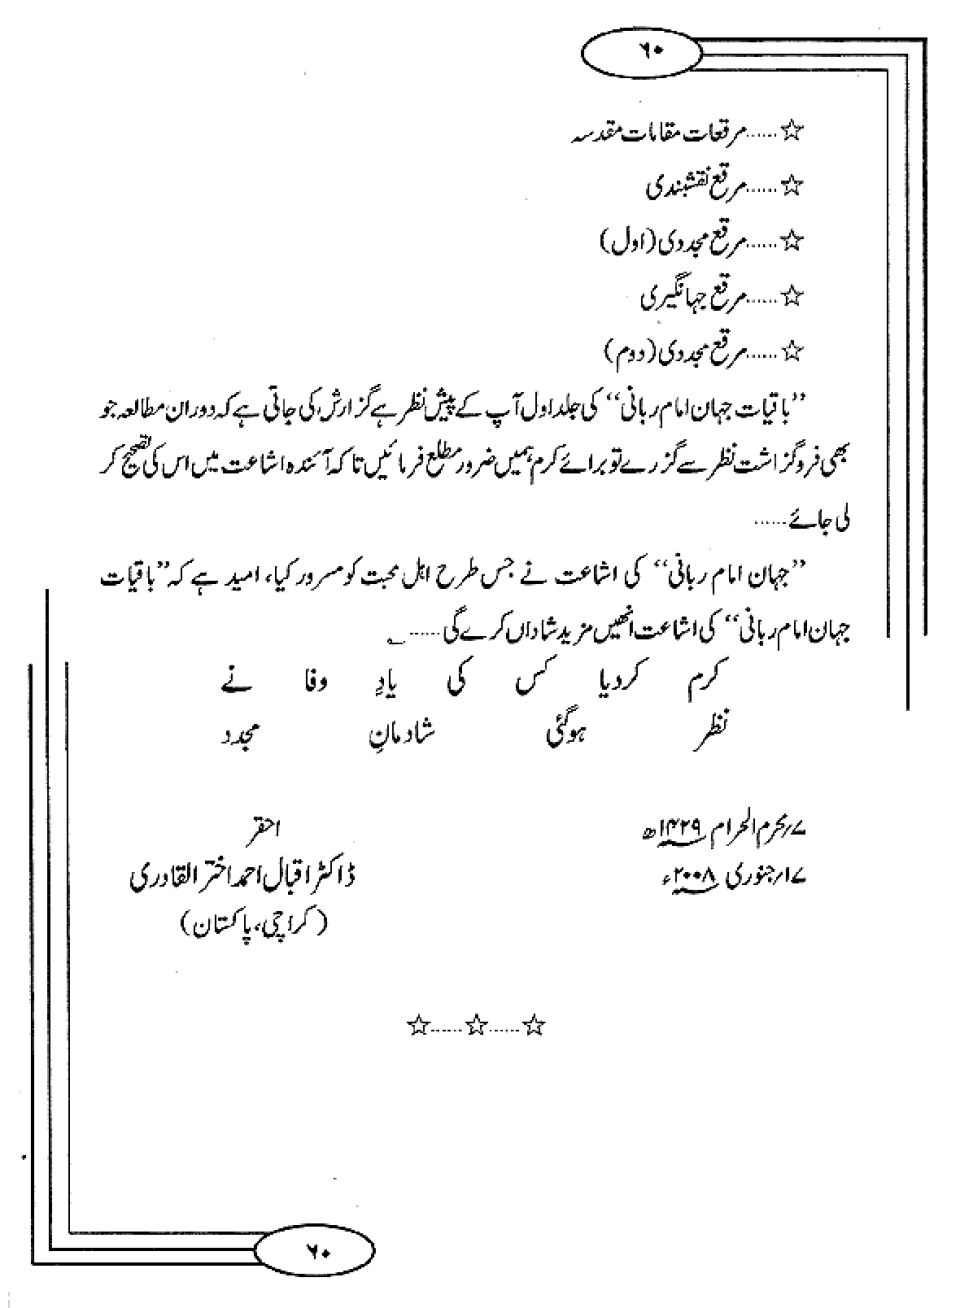 ۶۰
☆......مرقعات مقامات مقدسہ
☆......مرقع نقشبندی
☆......مرقع مجددی (اول)
☆......مرقع جہانگیری
☆......مرقع مجددی (دوم)
”باقیات جہان امام ربانی“ کی جلد اول آپ کے پیش نظر ہے گزارش کی جاتی ہے کہ دوران مطالعہ جو
بھی فروگزاشت نظر سے گزرے تو برائے کرم ہمیں ضرور مطلع فرمائیں تاکہ آئندہ اشاعت میں اس کی تصحیح کر
لی جائے......
”جہان امام ربانی“ کی اشاعت نے جس طرح اہل محبت کو مسرور کیا، امید ہے کہ ”باقیات
جہان امام ربانی“ کی اشاعت انھیں مزید شاداں کرے گی...... ؎
کرم کردیا کس کی یادِ وفا نے
نظر ہوگئی شادمانِ مجدد
۷/محرم الحرام ۱۴۲۹ھ
احقر
۱۷/جنوری ۲۰۰۸ء
ڈاکٹر اقبال احمد اختر القادری
(کراچی، پاکستان)
☆......☆......☆
۶۰